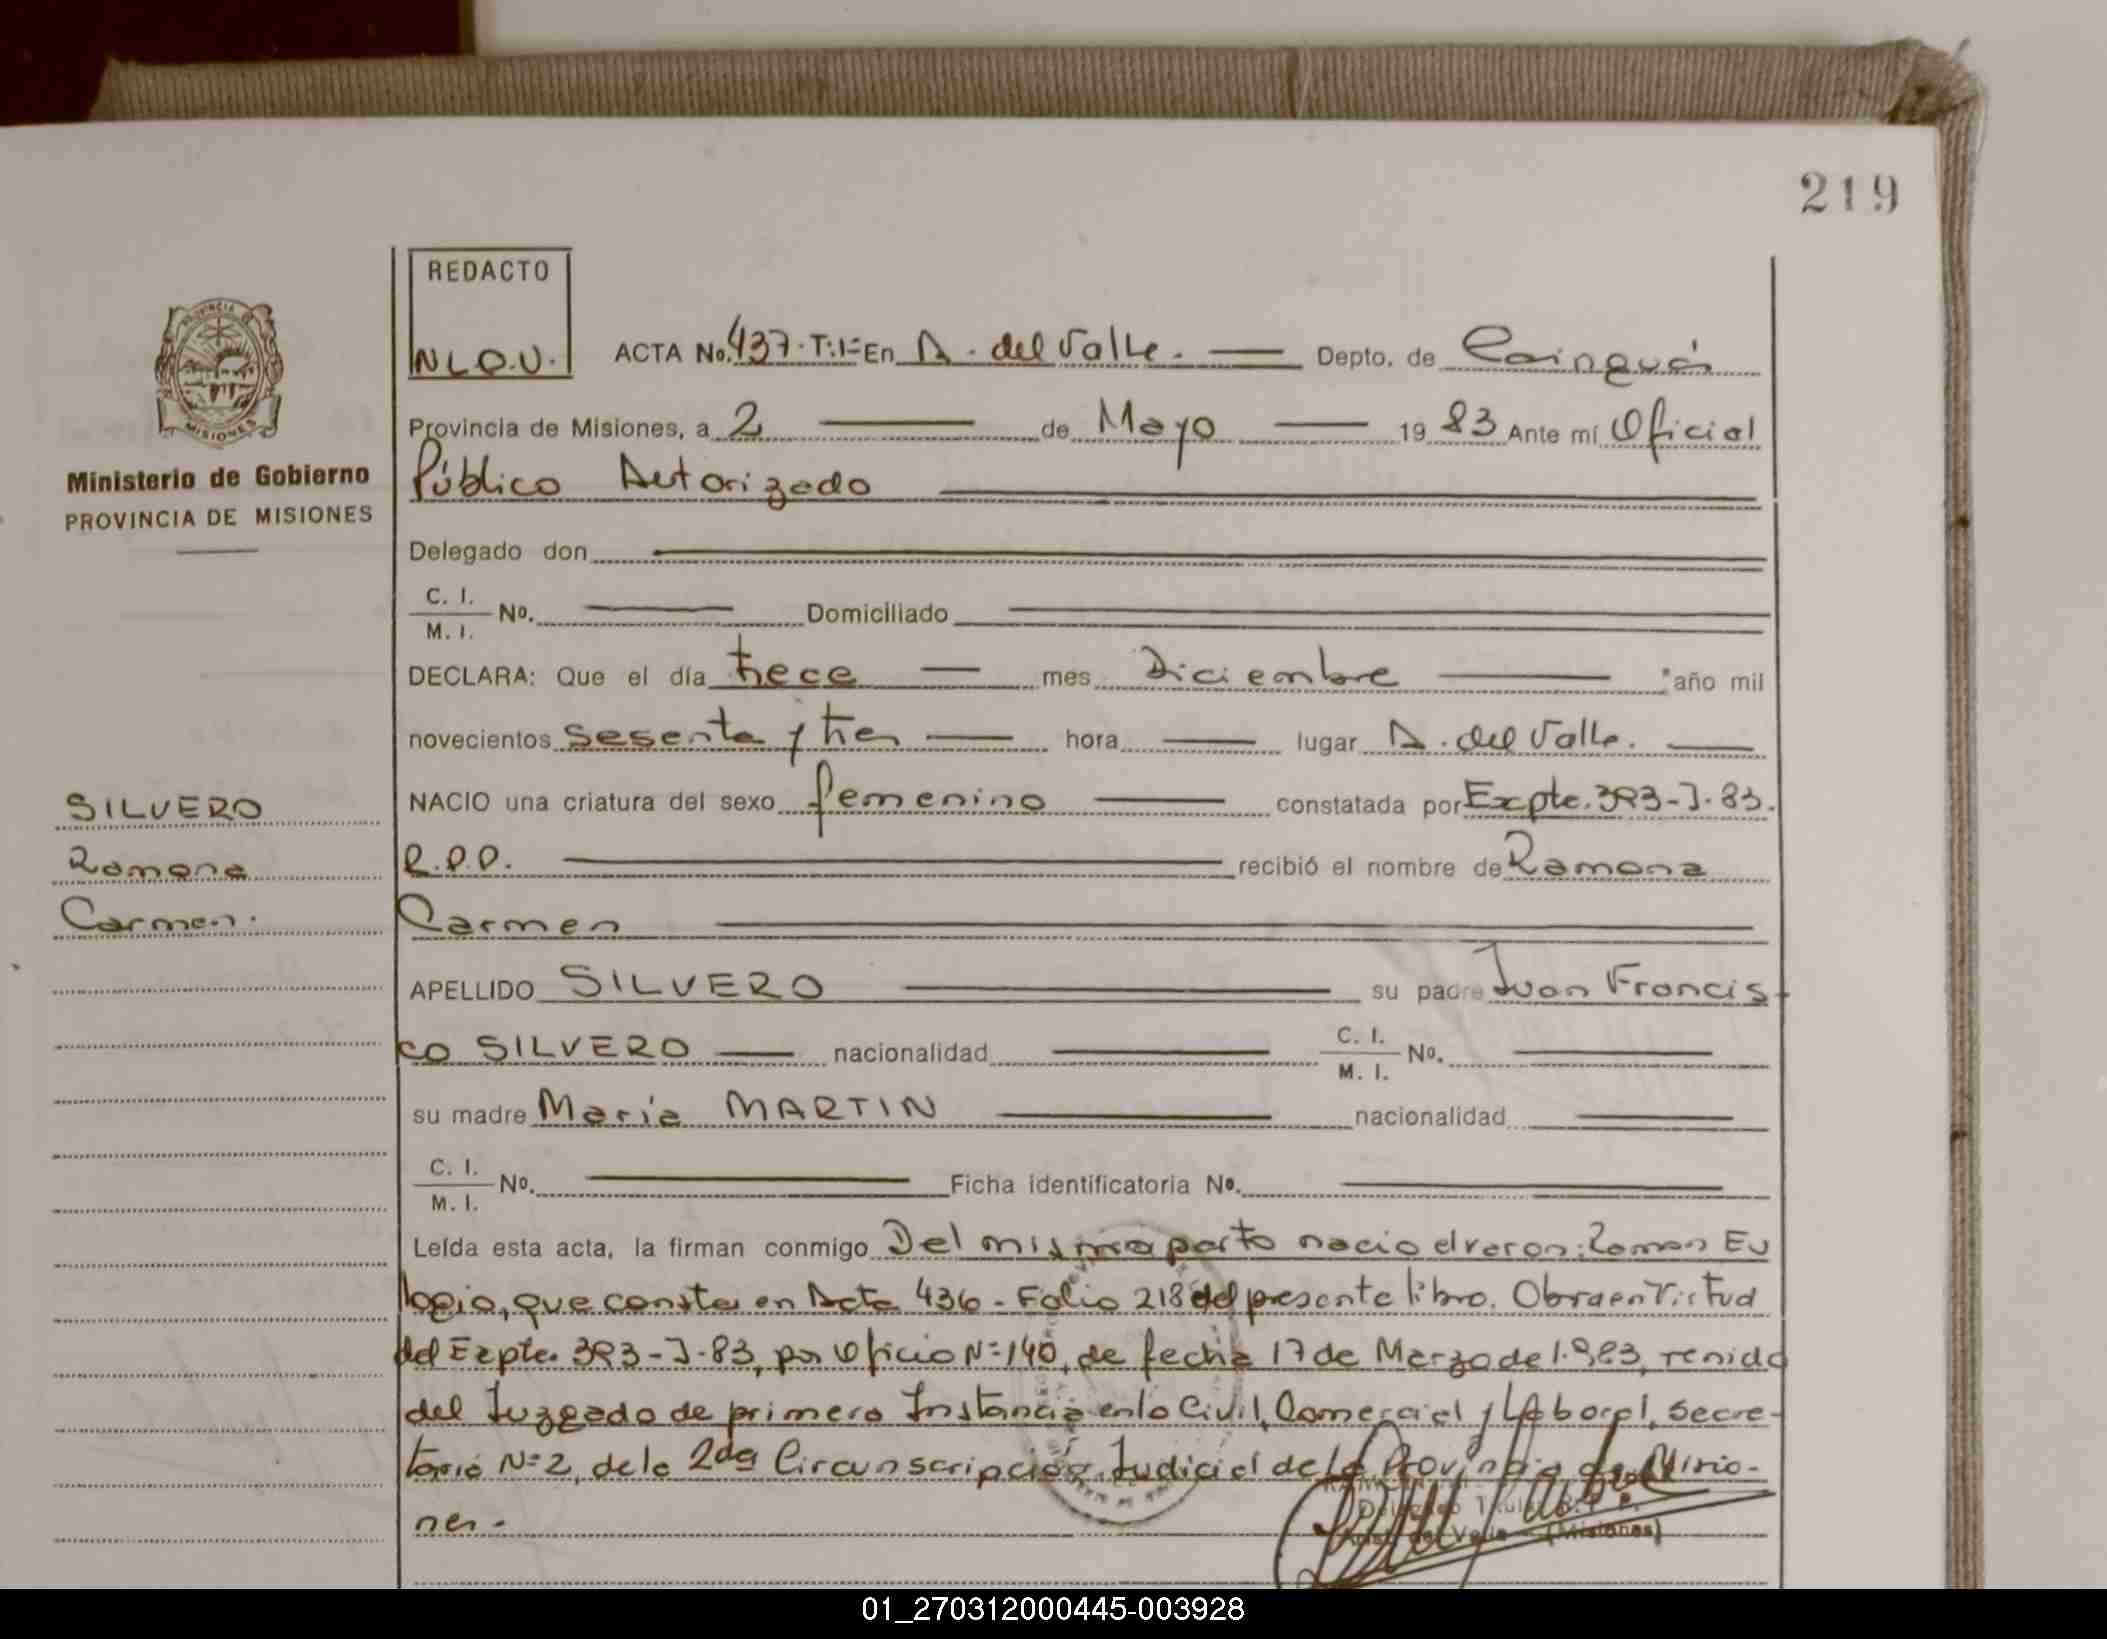 219
REDACTO
NLO.V.
PROVINCIA DE MISIONES
Ministerio de Gobierno
PROVINCIA DE MISIONES
ACTA No. 437.T.I= En A. del Valle. Depto. de Cainguás
Provincia de Misiones, a 2 de Mayo 19 83 Ante mí Oficial
Público Autorizado
Delegado don
C. I.
M. I. No. Domiciliado
DECLARA: Que el día trece mes Diciembre año mil
novecientos sesenta y tres hora lugar A. del Valle.
SILVERO
Ramona
Carmen.
NACIO una criatura del sexo femenino constatada por Expte. 393-J-83.
R.P.P. recibió el nombre de Ramona
Carmen
APELLIDO SILVERO su padre Juan Francis-
co SILVERO nacionalidad C. I.
M. I. No.
su madre María MARTIN nacionalidad
C. I.
M. I. No. Ficha identificatoria No.
Leída esta acta, la firman conmigo Del mismo parto nacio el varon: Roman Eu
logio, que consta en Acta 436 - Folio 218 del presente libro. Obra en Virtud
del Expte. 393-J-83, por Oficio N=140, de fecha 17 de Marzo de 1.983, venido
del Juzgado de primera Instancia en lo Civil, Comercial y Laboral, Secre-
taría N=2, de la 2da Circunscripción Judicial de la Provincia de Misio-
nes.-
Delegado Titular R.P.P.
Arist. del Valle - (Misiones)
01_270312000445-003928